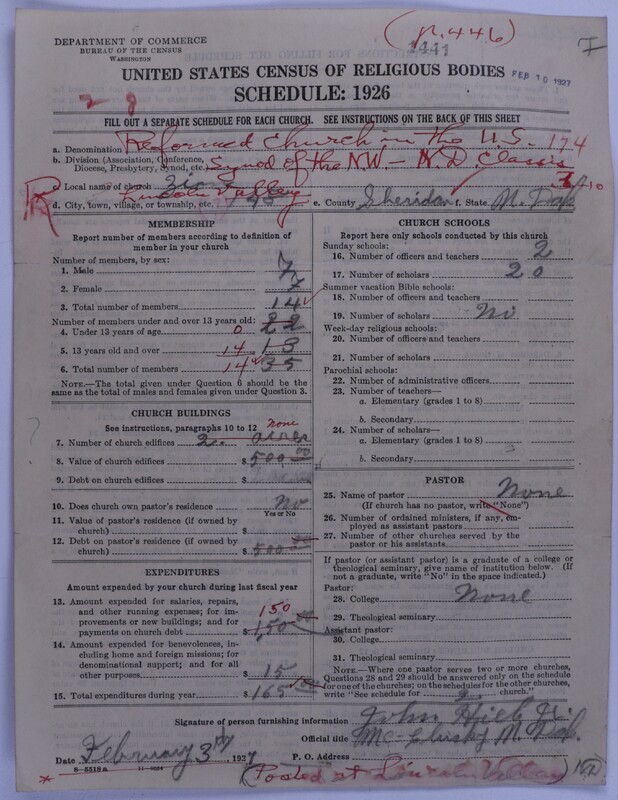 (p. 446)
1441
I
DEPARTMENT OF COMMERCE
BUREAU OF THE CENSUS
WASHINGTON
UNITED STATES CENSUS OF RELIGIOUS BODIES
FEB 10 1927
SCHEDULE: 1926
2 8
FILL OUT A SEPARATE SCHEDULE FOR EACH CHURCH. SEE INSTRUCTIONS ON THE BACK OF THIS SHEET
a. Denomination Reformed Church in the U.S. 174
b. Division (Association, Conference, Diocese, Presbytery, Synod, etc.) Synod of the NW - N.D. Classis
c. Local name of church
Lincoln Valley
d. City, town, village, or township, etc. e. County Sheridan f. State N. Dak
MEMBERSHIP
Report number of members according to definition of member in your church
Number of members, by sex:
1. Male 7
2. Female 7
3. Total number of members 14
Number of members under and over 13 years old:
4. Under 13 years of age 0 22
5. 13 years old and over 14 13
6. Total number of members 14 35
NOTE.—The total given under Question 6 should be the same as the total of males and females given under Question 3.
CHURCH BUILDINGS
See instructions, paragraphs 10 to 12
none
7. Number of church edifices 2. acres
8. Value of church edifices $ 500.00
9. Debt on church edifices $
10. Does church own pastor's residence No
Yes or No
11. Value of pastor's residence (if owned by church) $
12. Debt on pastor's residence (if owned by church) $ 500
EXPENDITURES
Amount expended by your church during last fiscal year
13. Amount expended for salaries, repairs, and other running expenses; for improvements or new buildings; and for payments on church debt $ 150
14. Amount expended for benevolences, including home and foreign missions; for denominational support; and for all other purposes $ 15
15. Total expenditures during year $ 165
CHURCH SCHOOLS
Report here only schools conducted by this church
Sunday schools:
16. Number of officers and teachers 2
17. Number of scholars 20
Summer vacation Bible schools:
18. Number of officers and teachers
19. Number of scholars No
Week-day religious schools:
20. Number of officers and teachers
21. Number of scholars
Parochial schools:
22. Number of administrative officers
23. Number of teachers—
a. Elementary (grades 1 to 8)
b. Secondary
24. Number of scholars—
a. Elementary (grades 1 to 8)
b. Secondary
PASTOR
25. Name of pastor None
(If church has no pastor, write "None")
26. Number of ordained ministers, if any, employed as assistant pastors
27. Number of other churches served by the pastor or his assistants
If pastor (or assistant pastor) is a graduate of a college or theological seminary, give name of institution below. (If not a graduate, write "No" in the space indicated.)
Pastor:
28. College None
29. Theological seminary
Assistant pastor:
30. College
31. Theological seminary
NOTE.—Where one pastor serves two or more churches, Questions 28 and 29 should be answered only on the schedule for one of the churches; on the schedules for the other churches, write "See schedule for church."
Signature of person furnishing information John Hieb Jr.
Official title McClusky N. Dak.
Date February 3rd, 1927
P. O. Address
8-5518a
* (Posted at Lincoln Valley N.D.)